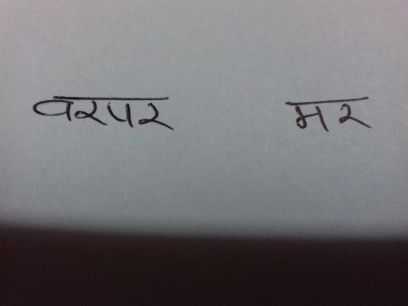 वरपर मर